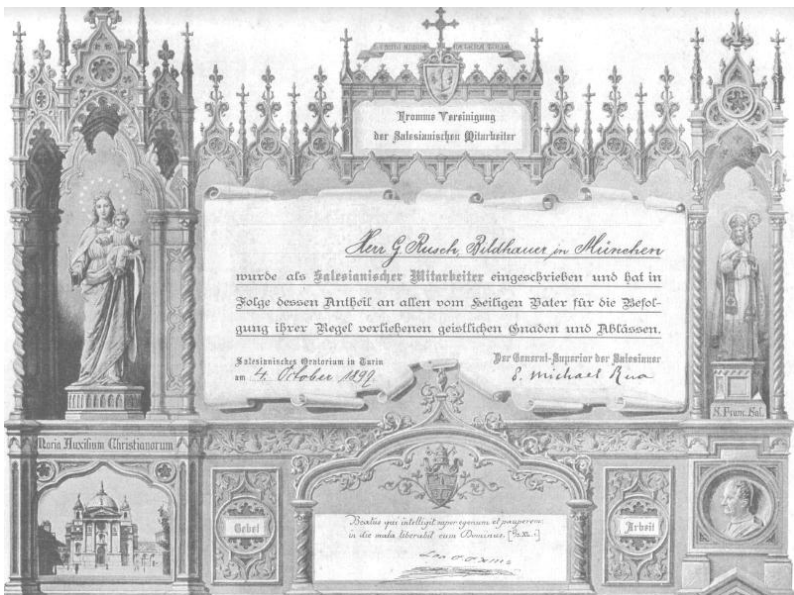 Fromme Vereinigung
der Salesianischen Mitarbeiter
Herr G. Rusch, Bildhauer in München
wurde als Salesianischer Mitarbeiter eingeschrieben und hat in
Folge dessen Antheil an allen vom Heiligen Vater für die Befol-
gung ihrer Regel verliehenen geistlichen Gnaden und Ablässen.
Salesianisches Oratorium in Turin
am 4. October 1899
Der General-Superior der Salesianer
S. Michael Rua
Maria Auxilium Christianorum
S. Fran. Sal.
Gebet
Beatus qui intelligit super egenum et pauperem:
in die mala liberabit eum Dominus.
Leo
Arbeit